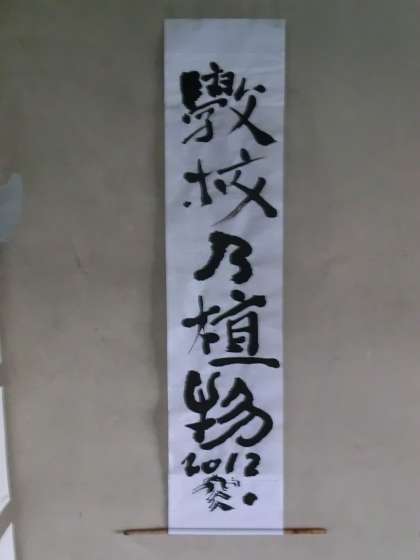 斆校乃植物
2012